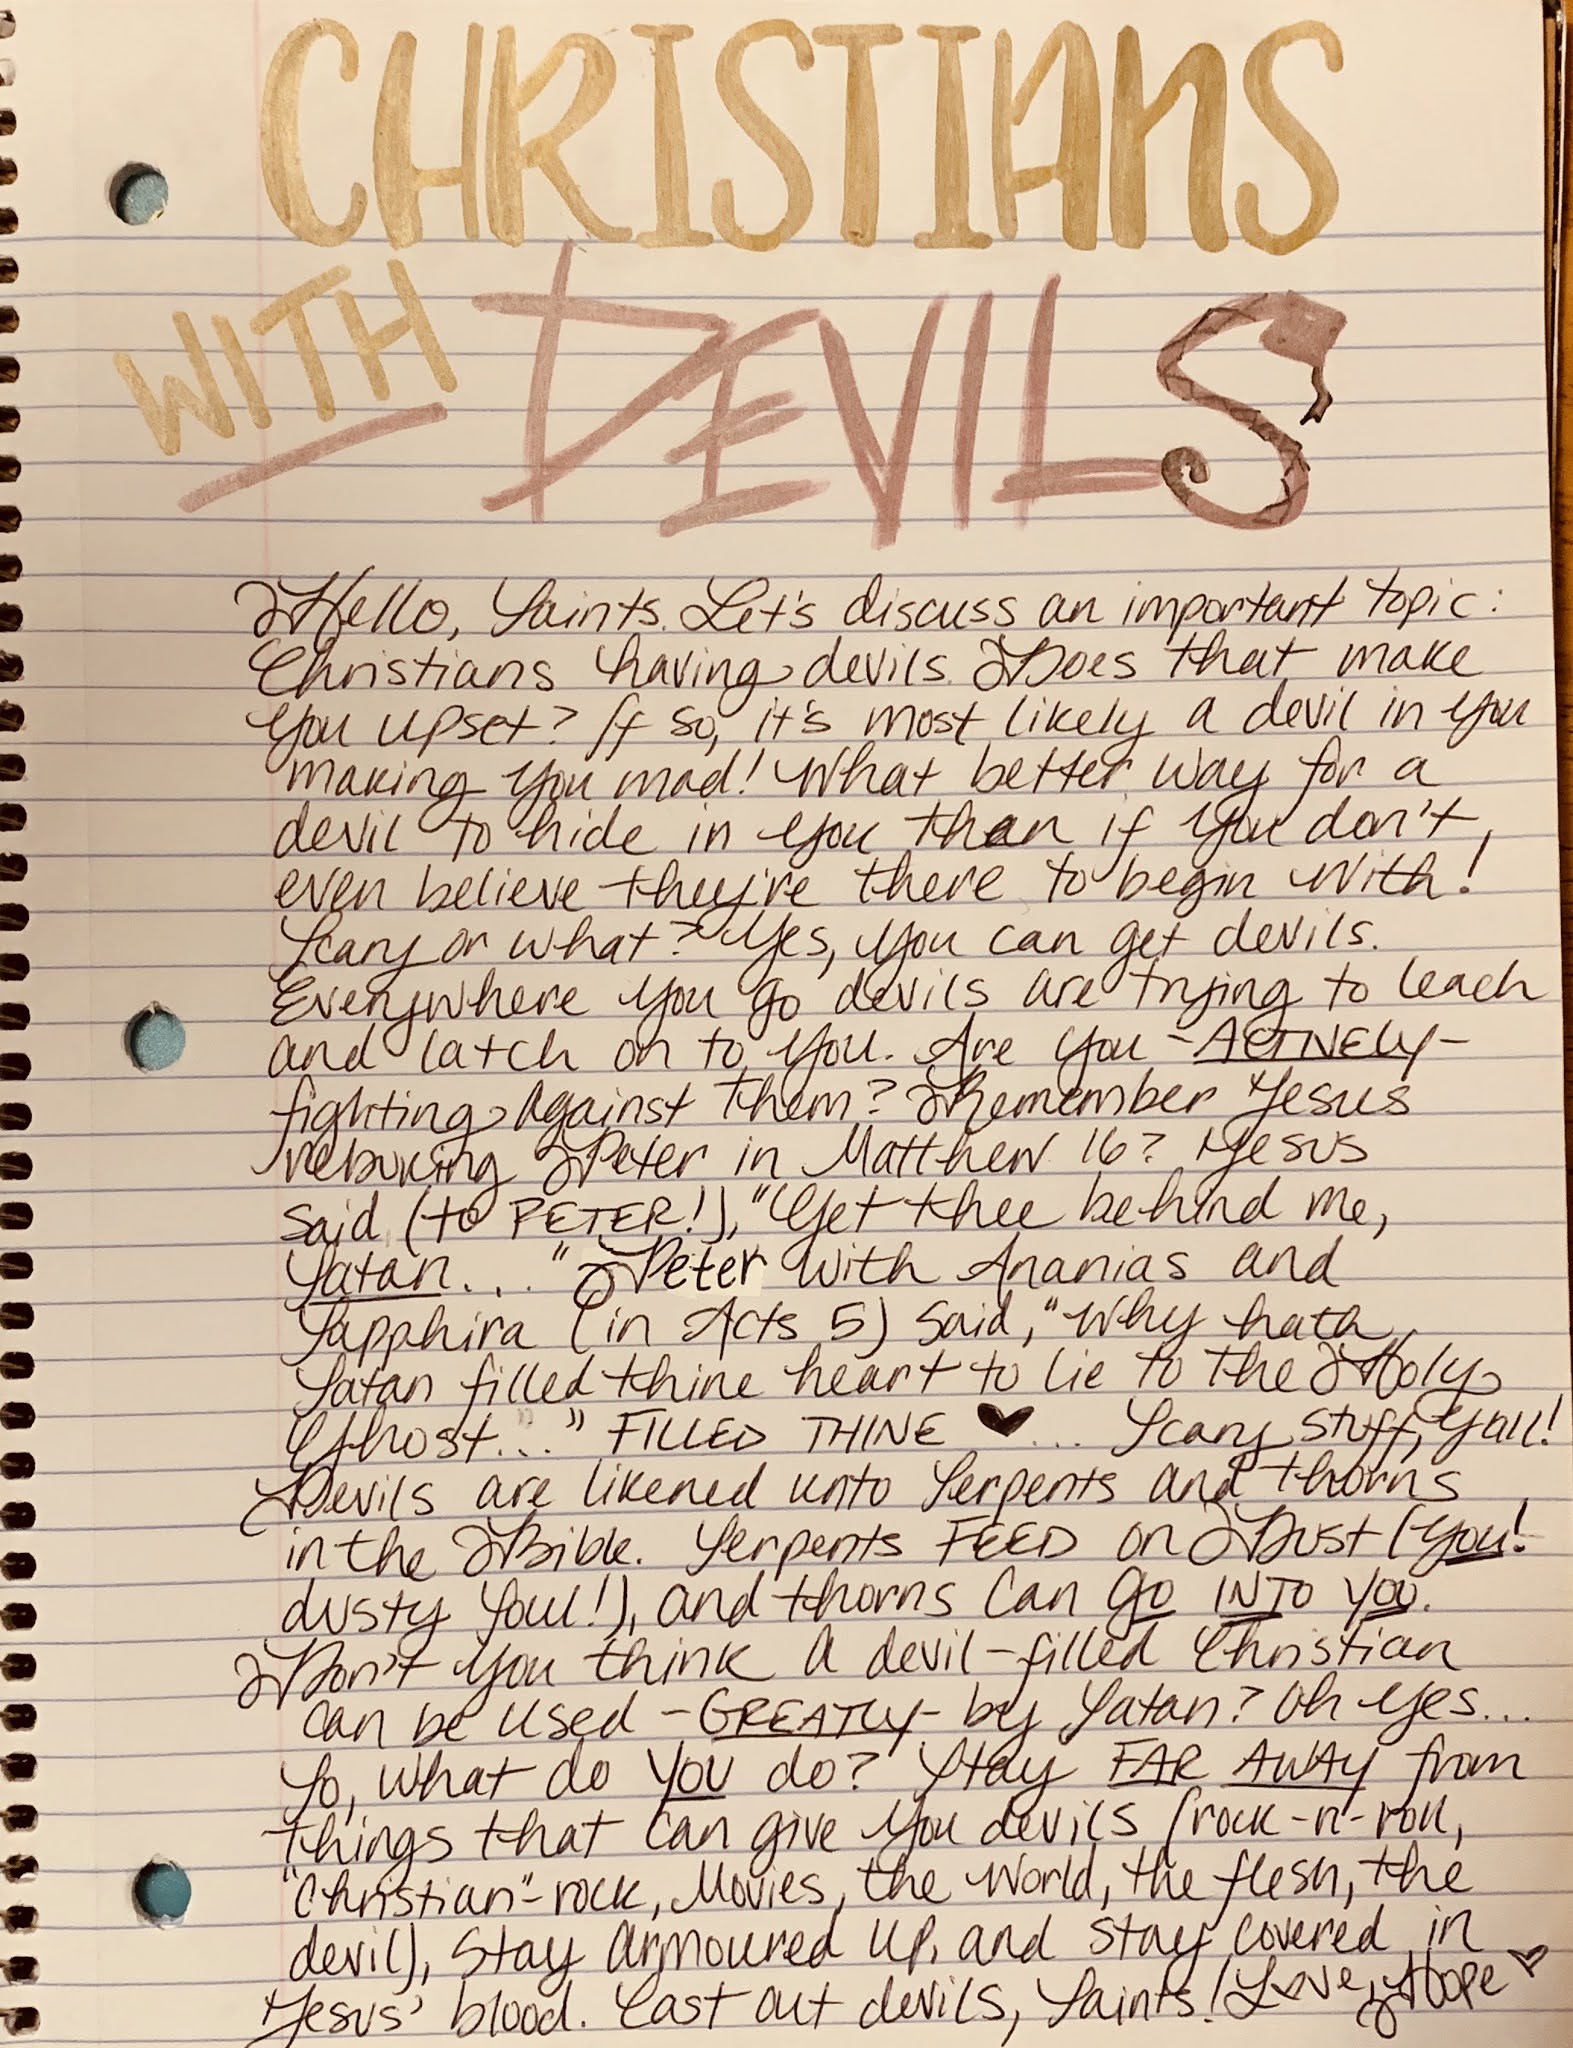 CHRISTIANS
WITH DEVILS
Hello, Saints. Let's discuss an important topic:
Christians having devils. Does that make
you upset? If so, it's most likely a devil in you
making you mad! What better way for a
devil to hide in you than if you don't
even believe they're there to begin with!
Scary or what? Yes, you can get devils.
Everywhere you go devils are trying to leach
and latch on to you. Are you -ACTIVELY-
fighting against them? Remember Jesus
rebuking Peter in Matthew 16? Jesus
said (to PETER!), "Get thee behind me,
Satan..." Peter with Ananias and
Sapphira (in Acts 5) said, "Why hath
Satan filled thine heart to lie to the Holy
Ghost..." FILLED THINE ♥... Scary stuff, y'all!
Devils are likened unto serpents and thorns
in the Bible. Serpents FEED on Dust (you!
dusty you!!), and thorns can go INTO you.
Don't you think a devil-filled Christian
can be used -GREATLY- by Satan? Oh yes...
So, what do YOU do? Stay FAR AWAY from
things that can give you devils (rock-n-roll,
"Christian"-rock, Movies, the World, the flesh, the
devil), stay armoured up, and stay covered in
Jesus' blood. Cast out devils, Saints! Love, Hope ♡